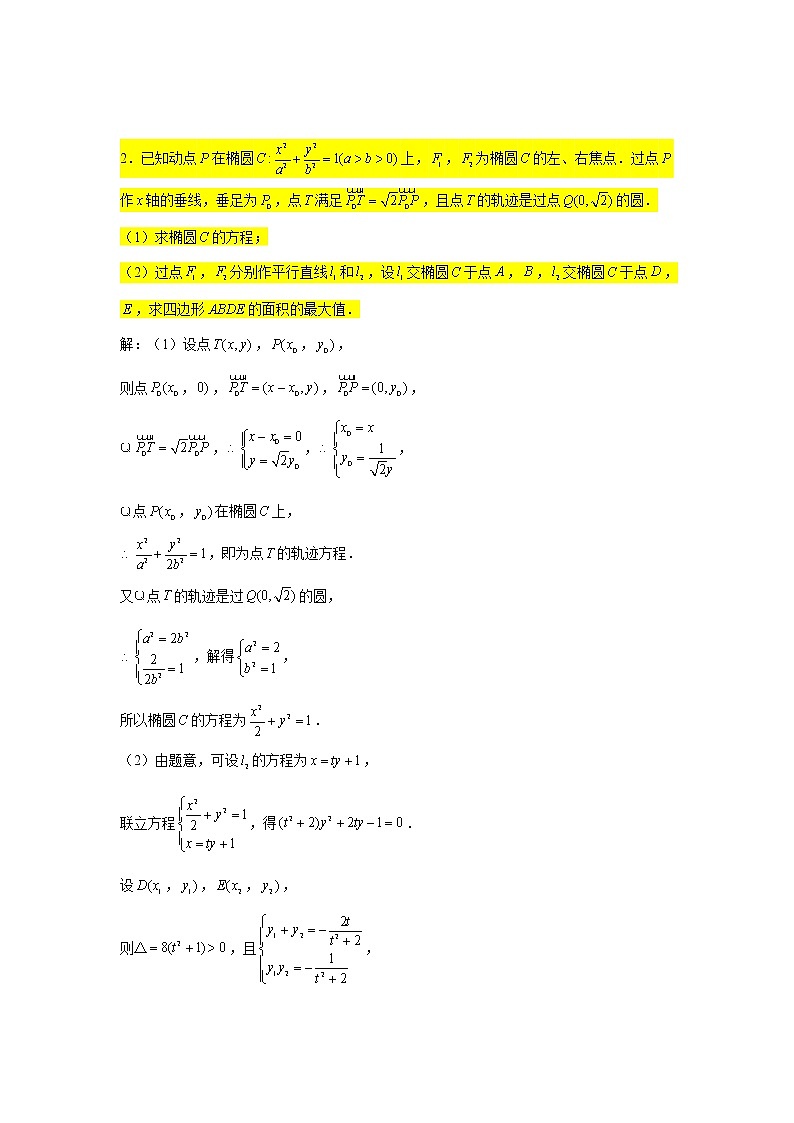 2.已知动点 P 在椭圆 C : x²/a² + y²/b² = 1(a > b > 0) 上，F₁，F₂ 为椭圆 C 的左、右焦点．过点 P
作 x 轴的垂线，垂足为 P₀，点 T 满足 P₀T = √2P₀P，且点 T 的轨迹是过点 Q(0, √2) 的圆．
（1）求椭圆 C 的方程；
（2）过点 F₁，F₂ 分别作平行直线 l₁ 和 l₂，设 l₁ 交椭圆 C 于点 A，B，l₂ 交椭圆 C 于点 D，
E，求四边形 ABDE 的面积的最大值．
解：（1）设点 T(x, y)，P(x₀，y₀)，
则点 P₀(x₀，0)，P₀T = (x − x₀, y)，P₀P = (0, y₀)，
Q P₀T = √2P₀P，∴ {x − x₀ = 0, y = √2y₀，∴ {x₀ = x, y₀ = 1/√2y，
Q 点 P(x₀，y₀) 在椭圆 C 上，
∴ x²/a² + y²/2b² = 1，即为点 T 的轨迹方程．
又 Q 点 T 的轨迹是过 Q(0, √2) 的圆，
∴ {a² = 2b², 2/2b² = 1，解得 {a² = 2, b² = 1，
所以椭圆 C 的方程为 x²/2 + y² = 1．
（2）由题意，可设 l₂ 的方程为 x = ty + 1，
联立方程 {x²/2 + y² = 1, x = ty + 1，得 (t² + 2)y² + 2ty − 1 = 0．
设 D(x₁，y₁)，E(x₂，y₂)，
则△ = 8(t² + 1) > 0，且 {y₁ + y₂ = − 2t/(t² + 2), y₁y₂ = − 1/(t² + 2)，